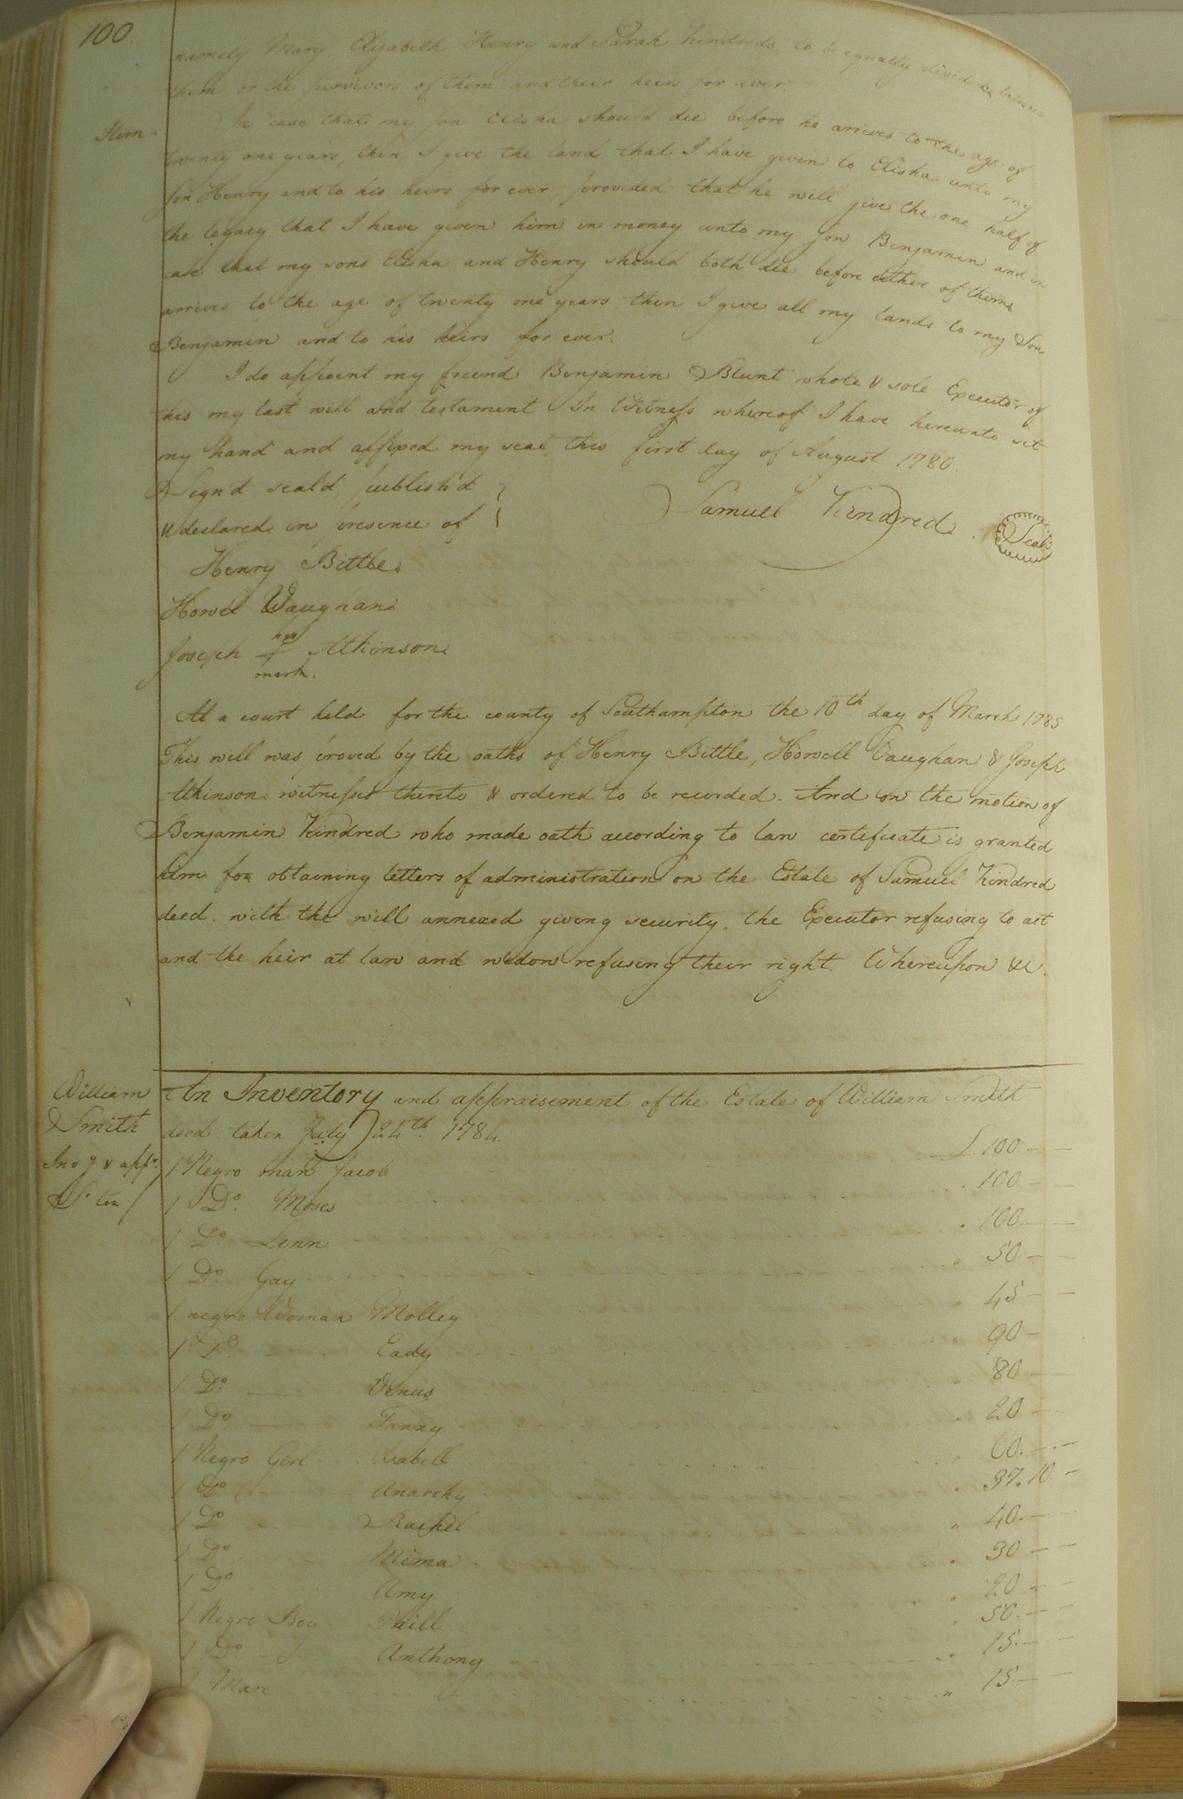 100.
namely Mary Elizabeth Henry and Sarah Kindreds, to be equally divided between
them or the survivors of them and their heirs for ever.
Item In case that my son Elisha should die before he arives to the age of
twenty one years, then I give the land that I have given to Elisha unto my
son Henry and to his heirs for ever, provided that he will give the one half of
the legacy that I have given him in money unto my son Benjamin and in
case that my sons Elisha and Henry should both die before either of them
arrives to the age of twenty one years then I give all my lands to my Son
Benjamin and to his heirs for ever.
I do appoint my friend Benjamin Blunt whole & sole Executor of
this my last will and testament In Witness whereof I have hereunto set
my hand and affixed my seal this first day of August 1780.
Sign'd seal'd, publish'd
& declared in presence of
Samuel Kindred Seal
Henry Bittle
Howel Vaughan
his
Joseph + Atkinson
mark.
At a court held for the county of Southampton the 10th day of March 1785
This will was proved by the oaths of Henry Bittle, Howell Vaughan & Joseph
Atkinson witnesses thereto & ordered to be recorded. And on the motion of
Benjamin Kindred who made oath according to law certificate is granted
him for obtaining letters of administration on the Estate of Samuel Kindred
deced. with the will annexed giving security, the Executor refusing to act
and the heir at law and widow refusing their right. Whereupon &c.
William
Smith
Inv.y & app.t
An Inventory and appraisement of the Estate of William Smith
deced taken July 24th. 1784.
1 Negro man Jacob £ 100 — —
1 Do. Moses 100 — —
1 Do. Lenn 100 — —
1 Do. Gay 50 — —
1 negro Woman Molley 45 — —
1 Do. Eady 90 —
1 Do. Venus 80 —
1 Do. Fanny 20 —
1 Negro Girl Isabell 60 . — . —
1 Do. Anarchy 37 . 10 —
1 Do. Rachel 40 . — —
1 Do. Mima 30 — —
1 Do. Amy 20 — —
1 Negro Boy Phill 50 . — —
1 Do. Anthony 15 . — —
1 Mare 15 — —